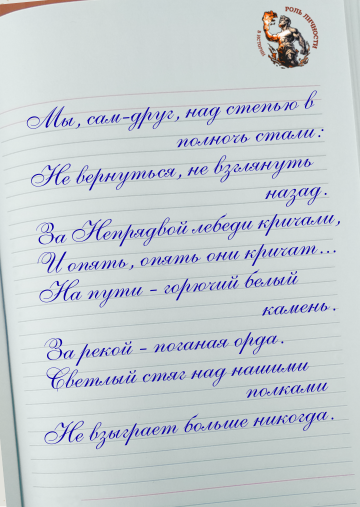 РОЛЬ ЛИЧНОСТИ
В ИСТОРИИ
Мы, сам-друг, над степью в
полночь стали:
Не вернуться, не взглянуть
назад.
За Непрядвой лебеди кричали,
И опять, опять они кричат...
На пути – горючий белый
камень.
За рекой – поганая орда.
Светлый стяг над нашими
полками
Не взыграет больше никогда.